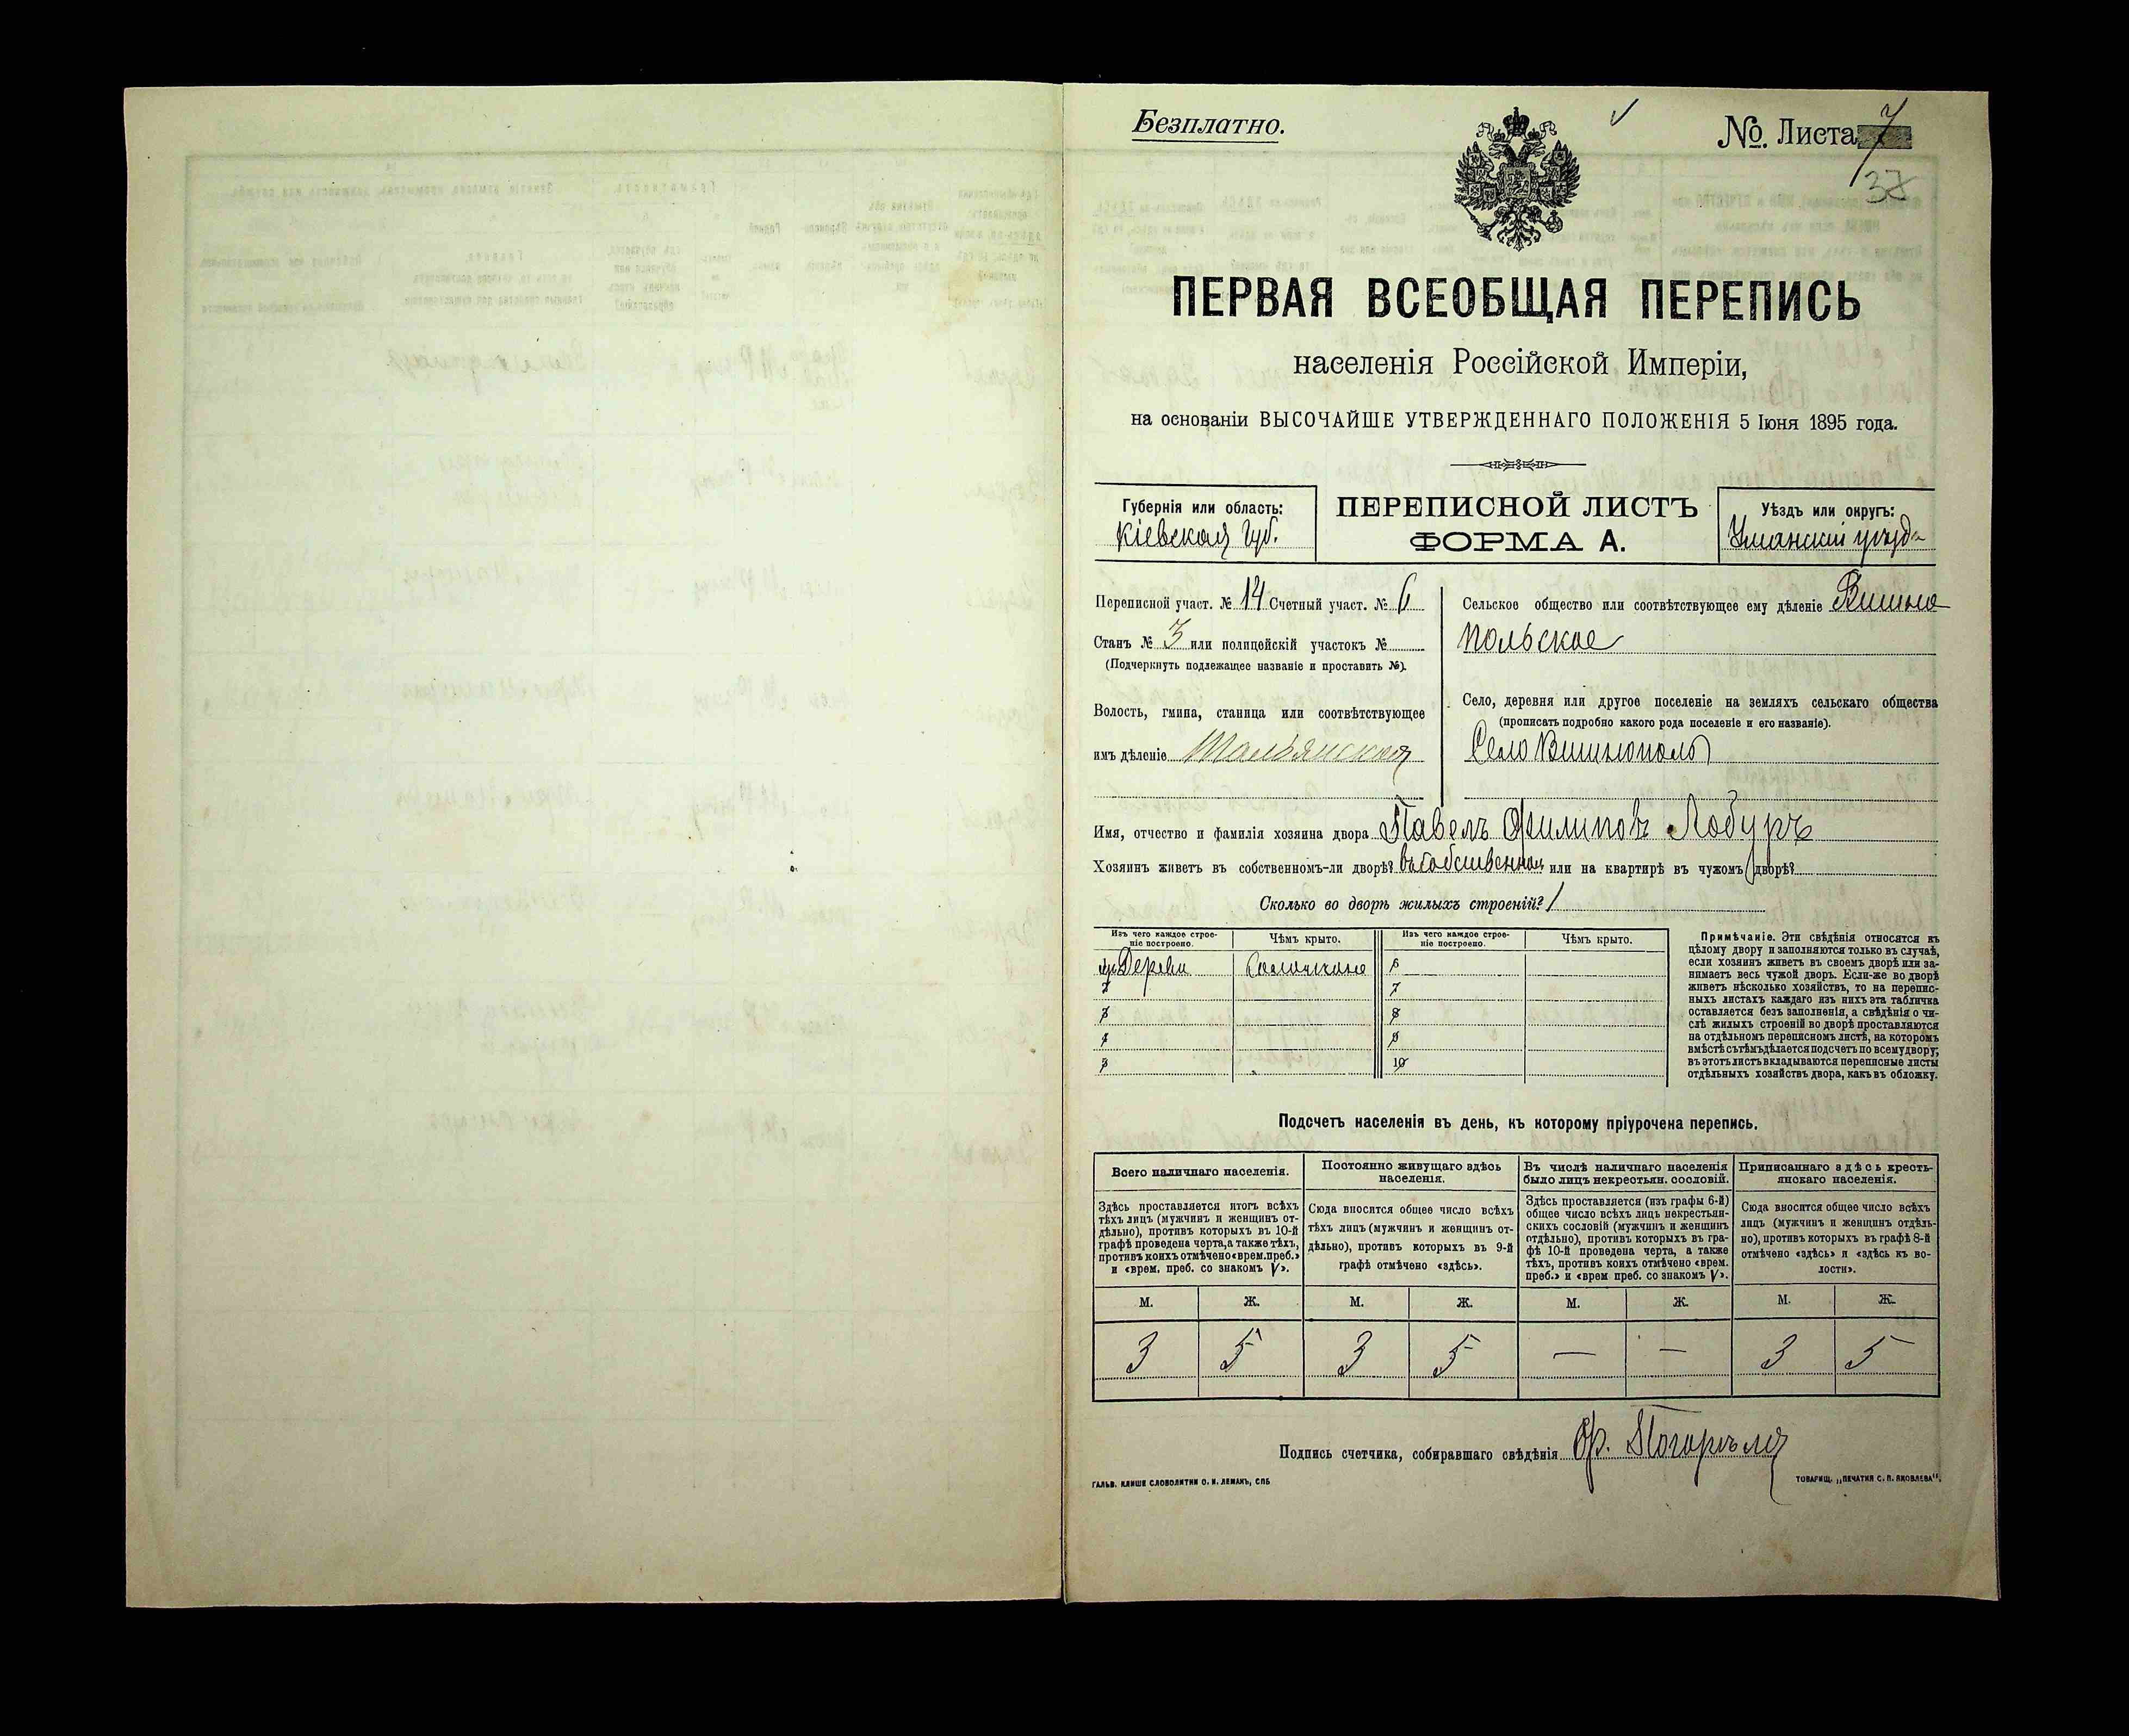 Безплатно.
№ Листа 7
37
ПЕРВАЯ ВСЕОБЩАЯ ПЕРЕПИСЬ
населенія Россійской Имперіи,
на основаніи ВЫСОЧАЙШЕ УТВЕРЖДЕННАГО ПОЛОЖЕНІЯ 5 Іюня 1895 года.
Губернія или область:
Кіевская губ.
ПЕРЕПИСНОЙ ЛИСТЪ
ФОРМА А.
Уѣздъ или округъ:
Уманскій уѣздъ
Переписной участ. № 14 Счетный участ. № 6
Станъ № 3 или полицейскій участокъ №
(Подчеркнуть подлежащее названіе и проставить №).
Волость, гмина, станица или соотвѣтствующее
имъ дѣленіе Тальянская
Сельское общество или соотвѣтствующее ему дѣленіе Вишно
польское
Село, деревня или другое поселеніе на земляхъ сельскаго общества
(прописать подробно какого рода поселеніе и его названіе).
Село Вишнополь
Имя, отчество и фамилія хозяина двора Павелъ Филиповъ Лобуръ
Хозяинъ живетъ въ собственномъ-ли дворѣ? въ собственном или на квартирѣ въ чужомъ дворѣ?
Сколько во дворѣ жилыхъ строеній? 1
Изъ чего каждое строе-
ніе построено.
Чѣмъ крыто.
Изъ чего каждое строе-
ніе построено.
Чѣмъ крыто.
Дерева
6
2
7
3
8
4
9
5
10
Примѣчаніе. Эти свѣдѣнія относятся къ
цѣлому двору и заполняются только въ случаѣ,
если хозяинъ живетъ въ своемъ дворѣ или за-
нимаетъ весь чужой дворъ. Если-же во дворѣ
живетъ нѣсколько хозяйствъ, то на перепис-
ныхъ листахъ каждаго изъ нихъ эта табличка
оставляется безъ заполненія, а свѣдѣнія о чи-
слѣ жилыхъ строеній во дворѣ проставляются
на отдѣльномъ переписномъ листѣ, на которомъ
вмѣстѣ съ тѣмъ дѣлается подсчетъ по всему двору;
въ этотъ листъ вкладываются переписные листы
отдѣльныхъ хозяйствъ двора, какъ въ обложку.
Подсчетъ населенія въ день, къ которому пріурочена перепись.
Всего наличнаго населенія.
Постоянно живущаго здѣсь
населенія.
Въ числѣ наличнаго населенія
было лицъ некрестьян. сословій.
Приписаннаго здѣсь кресть-
янскаго населенія.
Здѣсь проставляется итогъ всѣхъ
тѣхъ лицъ (мужчинъ и женщинъ от-
дѣльно), противъ которыхъ въ 10-й
графѣ проведена черта, а также тѣхъ,
противъ коихъ отмѣчено «врем. преб.»
и «врем. преб. со знакомъ V».
Сюда вносится общее число всѣхъ
тѣхъ лицъ (мужчинъ и женщинъ от-
дѣльно), противъ которыхъ въ 9-й
графѣ отмѣчено «здѣсь».
Здѣсь проставляется (изъ графы 6-й)
общее число всѣхъ лицъ некрестьян-
скихъ сословій (мужчинъ и женщинъ
отдѣльно), противъ которыхъ въ гра-
фѣ 10-й проведена черта, а также
тѣхъ, противъ коихъ отмѣчено «врем.
преб.» и «врем преб. со знакомъ V».
Сюда вносится общее число всѣхъ
лицъ (мужчинъ и женщинъ отдѣль-
но), противъ которыхъ въ графѣ 8-й
отмѣчено «здѣсь» и «здѣсь къ во-
лости».
М. Ж. М. Ж. М. Ж. М. Ж.
3 5 3 5 — — 3 5
Подпись счетчика, собиравшаго свѣдѣнія Ор. Погорѣля
ГАЛЬВ. КЛИШЕ СЛОВОЛИТНИ О. И. ЛЕМАНЪ, СПБ
ТОВАРИЩ. „ПЕЧАТНЯ С. П. ЯКОВЛЕВА".